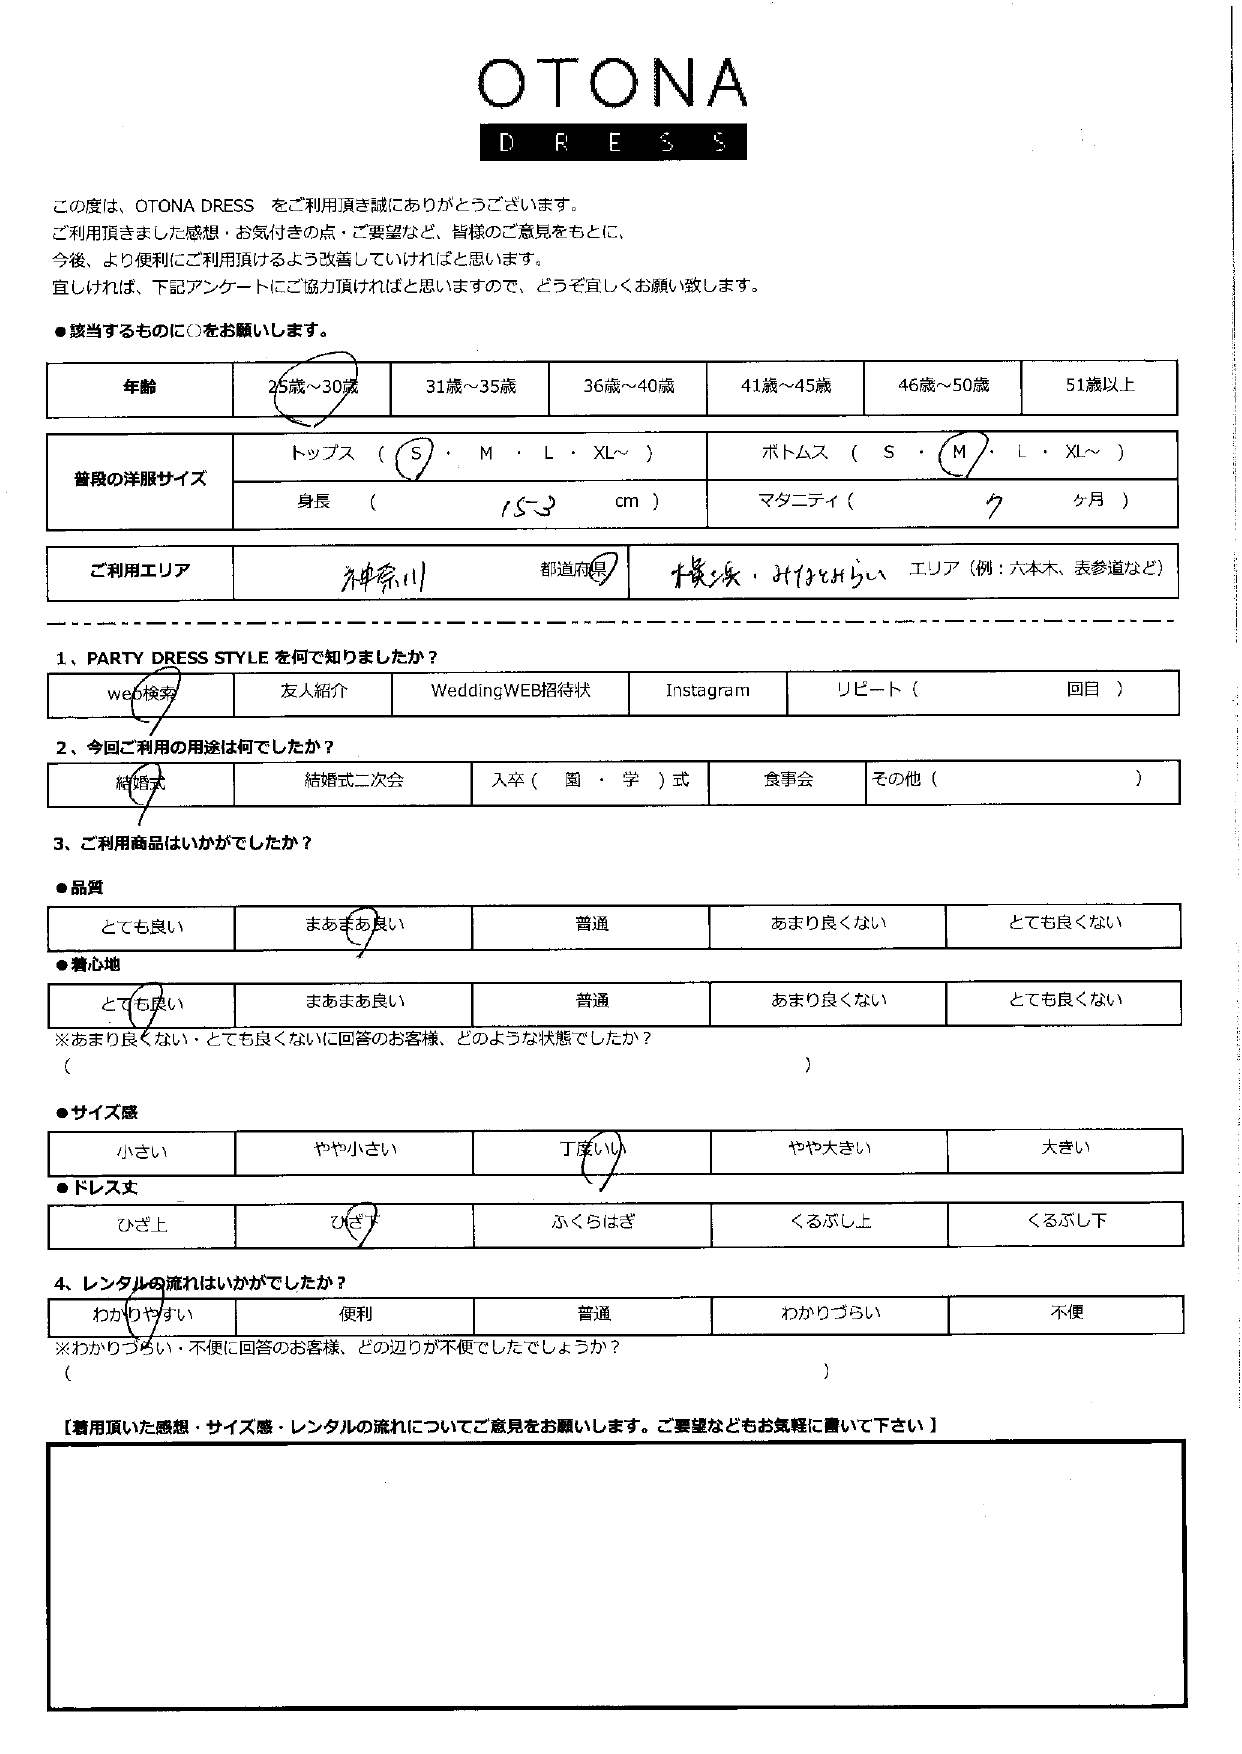 OTONA
DRESS
この度は、OTONA DRESS　をご利用頂き誠にありがとうございます。
ご利用頂きました感想・お気付きの点・ご要望など、皆様のご意見をもとに、
今後、より便利にご利用頂けるよう改善していければと思います。
宜しければ、下記アンケートにご協力頂ければと思いますので、どうぞ宜しくお願い致します。
●該当するものに○をお願いします。
年齢 25歳～30歳 31歳～35歳 36歳～40歳 41歳～45歳 46歳～50歳 51歳以上
普段の洋服サイズ
トップス （ S ・ M ・ L ・ XL～ ） ボトムス （ S ・ M ・ L ・ XL～ ）
身長 （ 153 cm ） マタニティ（ 7 ヶ月 ）
ご利用エリア 神奈川 都道府県 横浜・みなとみらい エリア（例：六本木、表参道など）
1、PARTY DRESS STYLE を何で知りましたか？
web検索 友人紹介 WeddingWEB招待状 Instagram リピート（ 回目 ）
2、今回ご利用の用途は何でしたか？
結婚式 結婚式二次会 入卒（ 園 ・ 学 ）式 食事会 その他（ ）
3、ご利用商品はいかがでしたか？
●品質
とても良い まあまあ良い 普通 あまり良くない とても良くない
●着心地
とても良い まあまあ良い 普通 あまり良くない とても良くない
※あまり良くない・とても良くないに回答のお客様、どのような状態でしたか？
（ ）
●サイズ感
小さい やや小さい 丁度いい やや大きい 大きい
●ドレス丈
ひざ上 ひざ下 ふくらはぎ くるぶし上 くるぶし下
4、レンタルの流れはいかがでしたか？
わかりやすい 便利 普通 わかりづらい 不便
※わかりづらい・不便に回答のお客様、どの辺りが不便でしたでしょうか？
（ ）
【着用頂いた感想・サイズ感・レンタルの流れについてご意見をお願いします。ご要望などもお気軽に書いて下さい 】